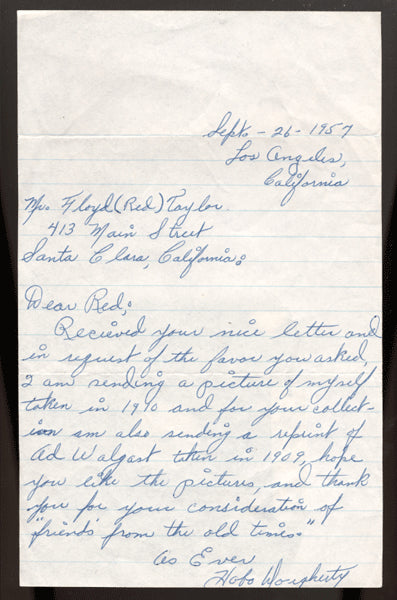 Sept. - 26 - 1957
Los Angeles,
California
Mr. Floyd (Red) Taylor.
413 Main Street
Santa Clara, California:
Dear Red;
Recieved your nice letter and
in request of the favor you asked,
I am sending a picture of myself
taken in 1910 and for your collect-
ion am also sending a reprint of
Ad Wolgast taken in 1909, hope
you like the pictures, and thank
you for your consideration of
"friends from the old times."
As Ever
Hobo Dougherty